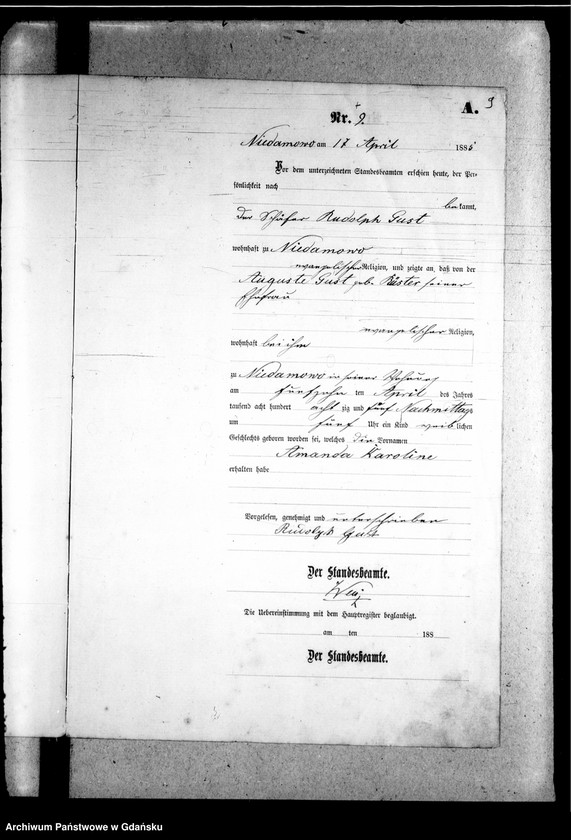 A. 9
Nr. 9.
Niedamowo am 17 April 1885
Vor dem unterzeichneten Standesbeamten erschien heute, der Per-
sönlichkeit nach
bekannt,
der Schäfer Rudolph Gust
wohnhaft zu Niedamowo
evangelischer Religion, und zeigte an, daß von der
Auguste Gust geb. Küster seiner
Ehefrau
evangelischer Religion,
wohnhaft bei ihm
zu Niedamowo in seiner Wohnung
am fünfzehn ten April des Jahres
tausend acht hundert acht zig und fünf Nachmittags
um fünf Uhr ein Kind weiblichen
Geschlechts geboren worden sei, welches die Vornamen
Amanda Karoline
erhalten habe
Vorgelesen, genehmigt und unterschrieben
Rudolph Gust
Der Standesbeamte.
Die Uebereinstimmung mit dem Hauptregister beglaubigt.
am ten 188
Der Standesbeamte.
Archiwum Państwowe w Gdańsku